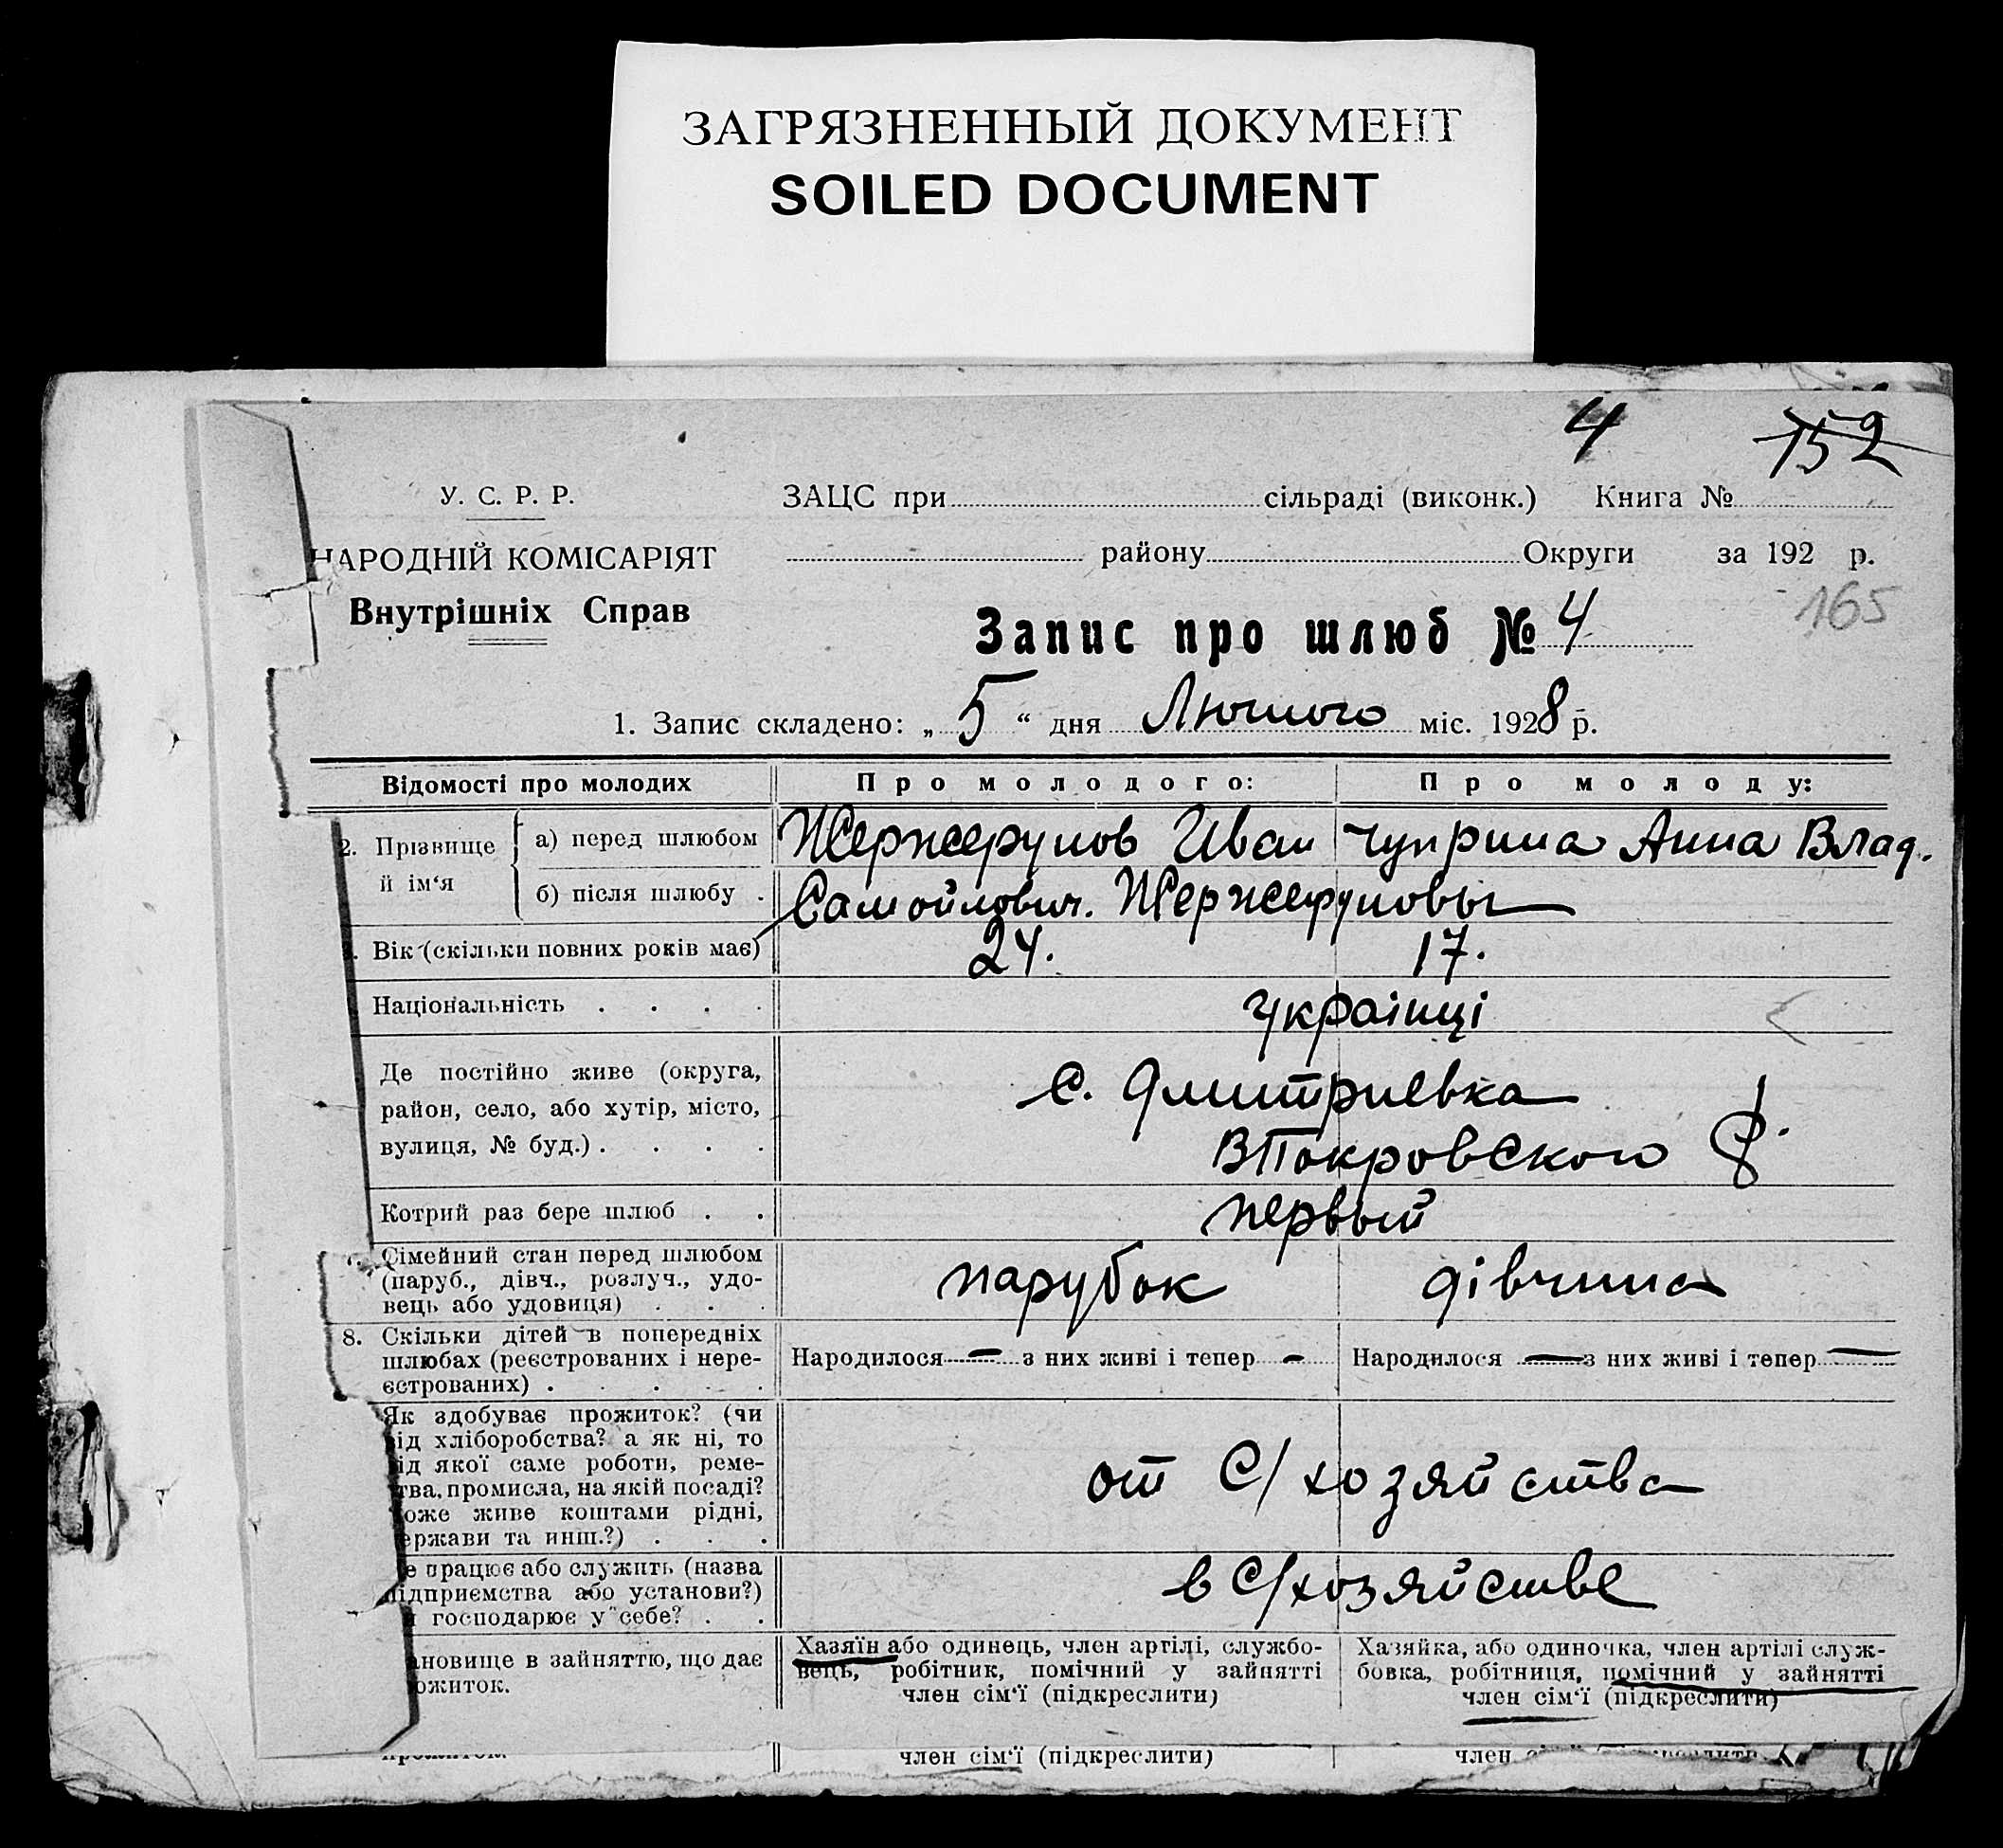 ЗАГРЯЗНЕННЫЙ ДОКУМЕНТ
SOILED DOCUMENT
4 752
У. С. Р. Р.
ЗАЦС при сільраді (виконк.) Книга №
НАРОДНІЙ КОМІСАРІЯТ
району Округи за 192 р.
Внутрішніх Справ
165
Запис про шлюб № 4
1. Запис складено: „ 5 “ дня Лютого міс. 1928 р.
Відомості про молодих Про молодого: Про молоду:
2. Прізвище й ім‘я
а) перед шлюбом Жержерунов Иван Чуприна Анна Влад.
б) після шлюбу . Самойлович. Жержеруновы
Вік (скільки повних років має) 24. 17.
Національність . . . . українці
Де постійно живе (округа,
район, село, або хутір, місто,
вулиця, № буд.) . . . .
с. Дмитриевка
ВПокровского
Котрий раз бере шлюб . . первый
Сімейний стан перед шлюбом
(паруб., дівч., розлуч., удо-
вець або удовиця) . . .
парубок дівчина
8. Скільки дітей в попередніх
шлюбах (реєстрованих і нере-
єстрованих) . . . . .
Народилося — з них живі і тепер — Народилося — з них живі і тепер —
Як здобуває прожиток? (чи
від хліборобства? а як ні, то
від якої саме роботи, реме-
тва, промисла, на якій посаді?
може живе коштами рідні,
ержави та инш.?) . . .
от С/хозяйства
е працює або служить (назва
підприємства або установи?)
и господарює у себе? . .
в С/хозяйстве
ановище в зайняттю, що дає
ожиток.
Хазяїн або одинець, член артілі, службо-
вець, робітник, помічний у зайнятті
член сім‘ї (підкреслити)
Хазяйка, або одиночка, член артілі служ-
бовка, робітниця, помічний у зайнятті
член сім‘ї (підкреслити)
член сім‘ї (підкреслити) член